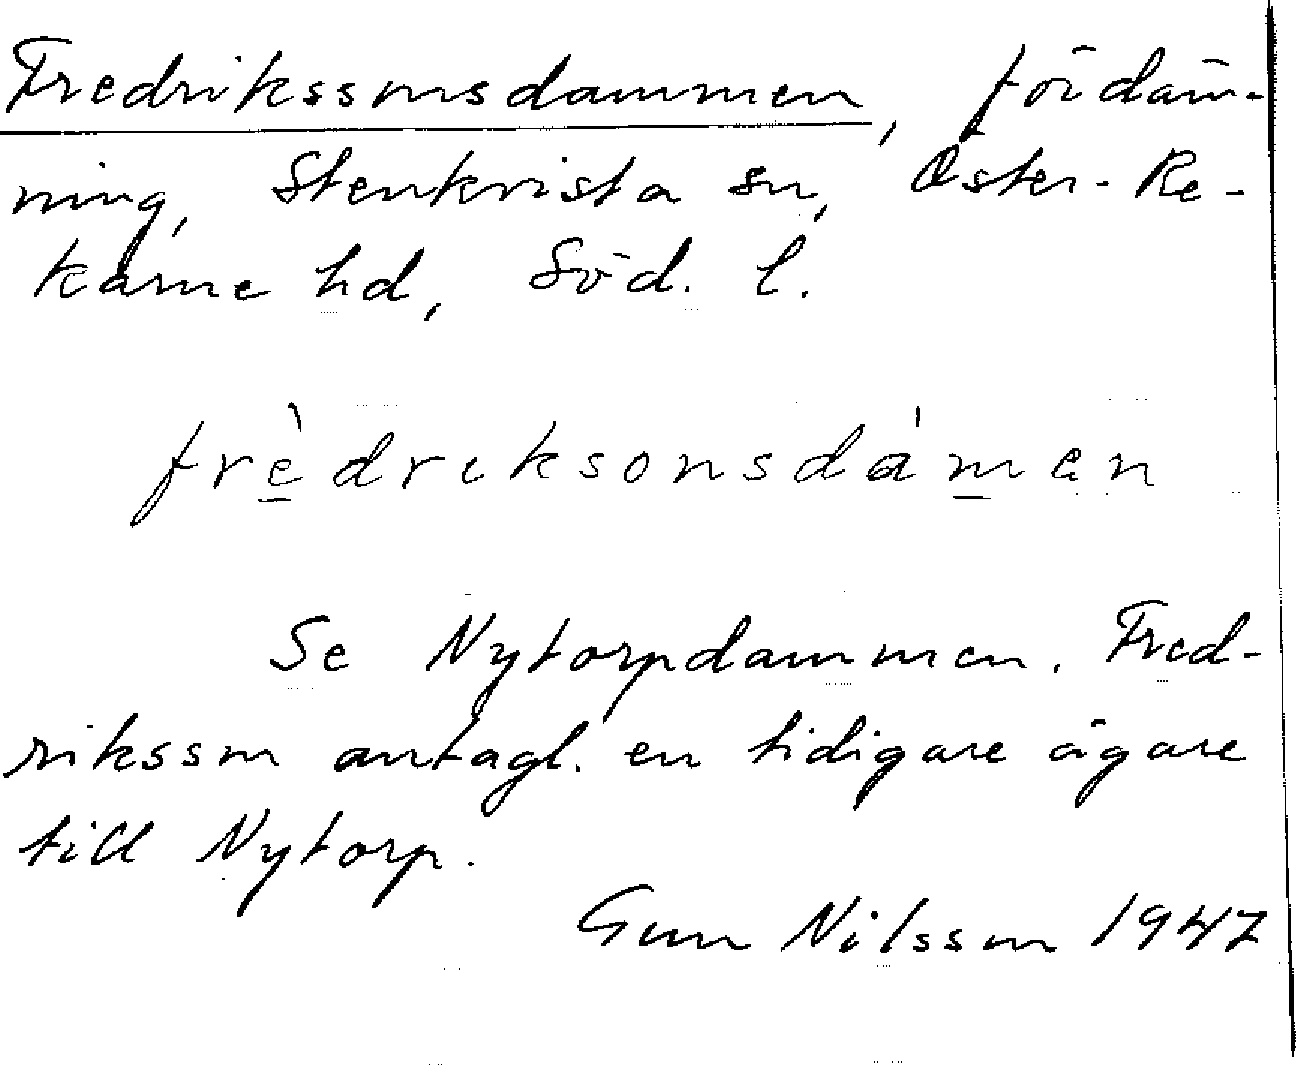 Fredrikssonsdammen, fördäm-
ning, Stenkvista sn, Öster-Re-
karne hd, Söd. l.
frèdriksonsdámen
Se Nytorpdammen. Fred-
riksson antagl. en tidigare ägare
till Nytorp.
Gun Nilsson 1947